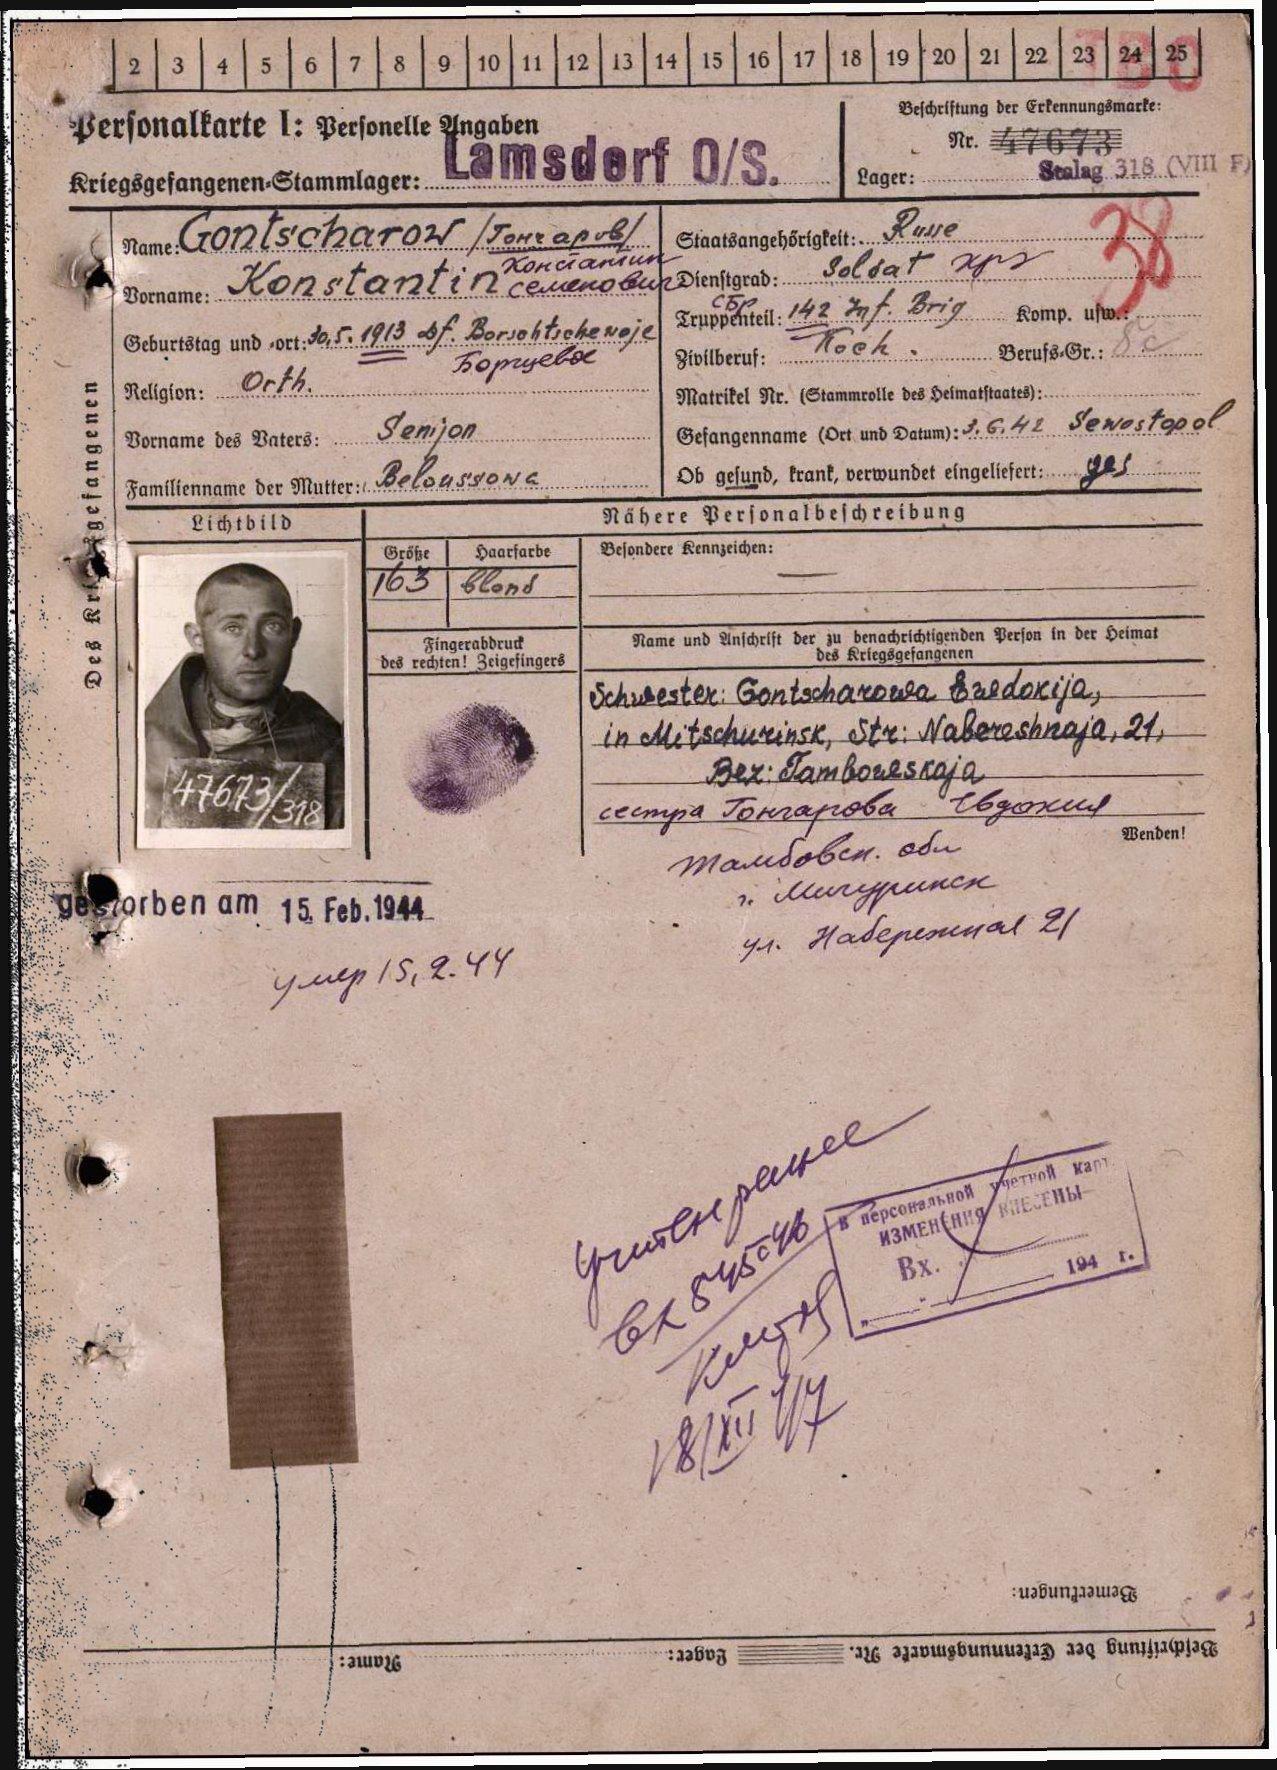 2 3 4 5 6 7 8 9 10 11 12 13 14 15 16 17 18 19 20 21 22 23 24 25
Personalkarte I: Personelle Angaben
Kriegsgefangenen-Stammlager: Lamsdorf O/S.
Beschriftung der Erkennungsmarke:
Nr. 47673
Lager: Stalag 318 (VIII F)
Des Kriegsgefangenen
Name: Gontscharow /Гончаров/
Vorname: Konstantin Константин Семенович
Geburtstag und -ort: 30.5.1913 Df. Borschtschewoje
Борщевое
Religion: Orth.
Vorname des Vaters: Semjon
Familienname der Mutter: Beloussowa
Staatsangehörigkeit: Russe
38
Dienstgrad: Soldat кр
Truppenteil: 142 Inf. Brig Komp. usw.:
СБр
Zivilberuf: Koch. Berufs-Gr.: 8c
Matrikel Nr. (Stammrolle des Heimatstaates):
Gefangenname (Ort und Datum): 3.6.42 Sewostopol
Ob gesund, krank, verwundet eingeliefert: ges
Lichtbild
Nähere Personalbeschreibung
Größe Haarfarbe
163 blond
Besondere Kennzeichen: —
Fingerabdruck
des rechten! Zeigefingers
47673/318
Name und Anschrift der zu benachrichtigenden Person in der Heimat
des Kriegsgefangenen
Schwester: Gontscharowa Ewdokija,
in Mitschurinsk, Str: Nabereshnaja, 21,
Bez: Tambowskaja
сестра Гончарова Евдокия
Wenden!
Тамбовск. обл
г. Мичуринск
ул. Набережная 21
gestorben am 15. Feb. 1944
умер 15.2.44
Учтен ранее
вх 54546
18/XII 47
В персональной учетной карт.
ИЗМЕНЕНИЯ ВНЕСЕНЫ
Вх.
194 г.
Bemerkungen:
Beschriftung der Erkennungsmarke Nr. Lager: Name: